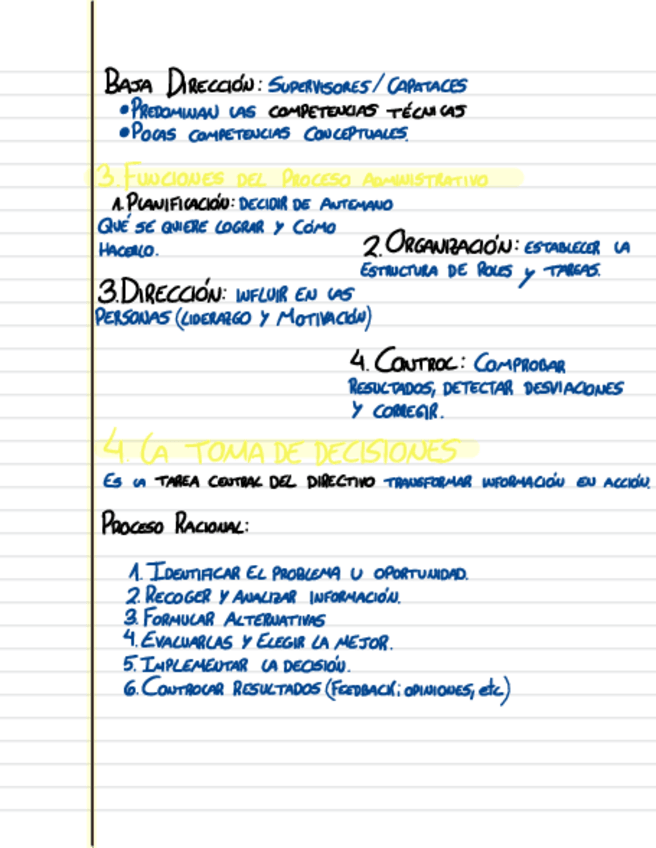 BAJA DIRECCIÓN: SUPERVISORES / CAPATACES
• PREDOMINAN LAS COMPETENCIAS TÉCNICAS
• POCAS COMPETENCIAS CONCEPTUALES.
3. FUNCIONES DEL PROCESO ADMINISTRATIVO
1. PLANIFICACIÓN: DECIDIR DE ANTEMANO
QUÉ SE QUIERE LOGRAR Y CÓMO
HACERLO.
2. ORGANIZACIÓN: ESTABLECER LA
ESTRUCTURA DE ROLES Y TAREAS.
3. DIRECCIÓN: INFLUIR EN LAS
PERSONAS (LIDERAZGO Y MOTIVACIÓN)
4. CONTROL: COMPROBAR
RESULTADOS, DETECTAR DESVIACIONES
Y CORREGIR.
4. LA TOMA DE DECISIONES
ES LA TAREA CENTRAL DEL DIRECTIVO TRANSFORMAR INFORMACIÓN EN ACCIÓN.
PROCESO RACIONAL:
1. IDENTIFICAR EL PROBLEMA U OPORTUNIDAD.
2. RECOGER Y ANALIZAR INFORMACIÓN.
3. FORMULAR ALTERNATIVAS
4. EVALUARLAS Y ELEGIR LA MEJOR.
5. IMPLEMENTAR LA DECISIÓN.
6. CONTROLAR RESULTADOS (FEEDBACK; OPINIONES, etc)